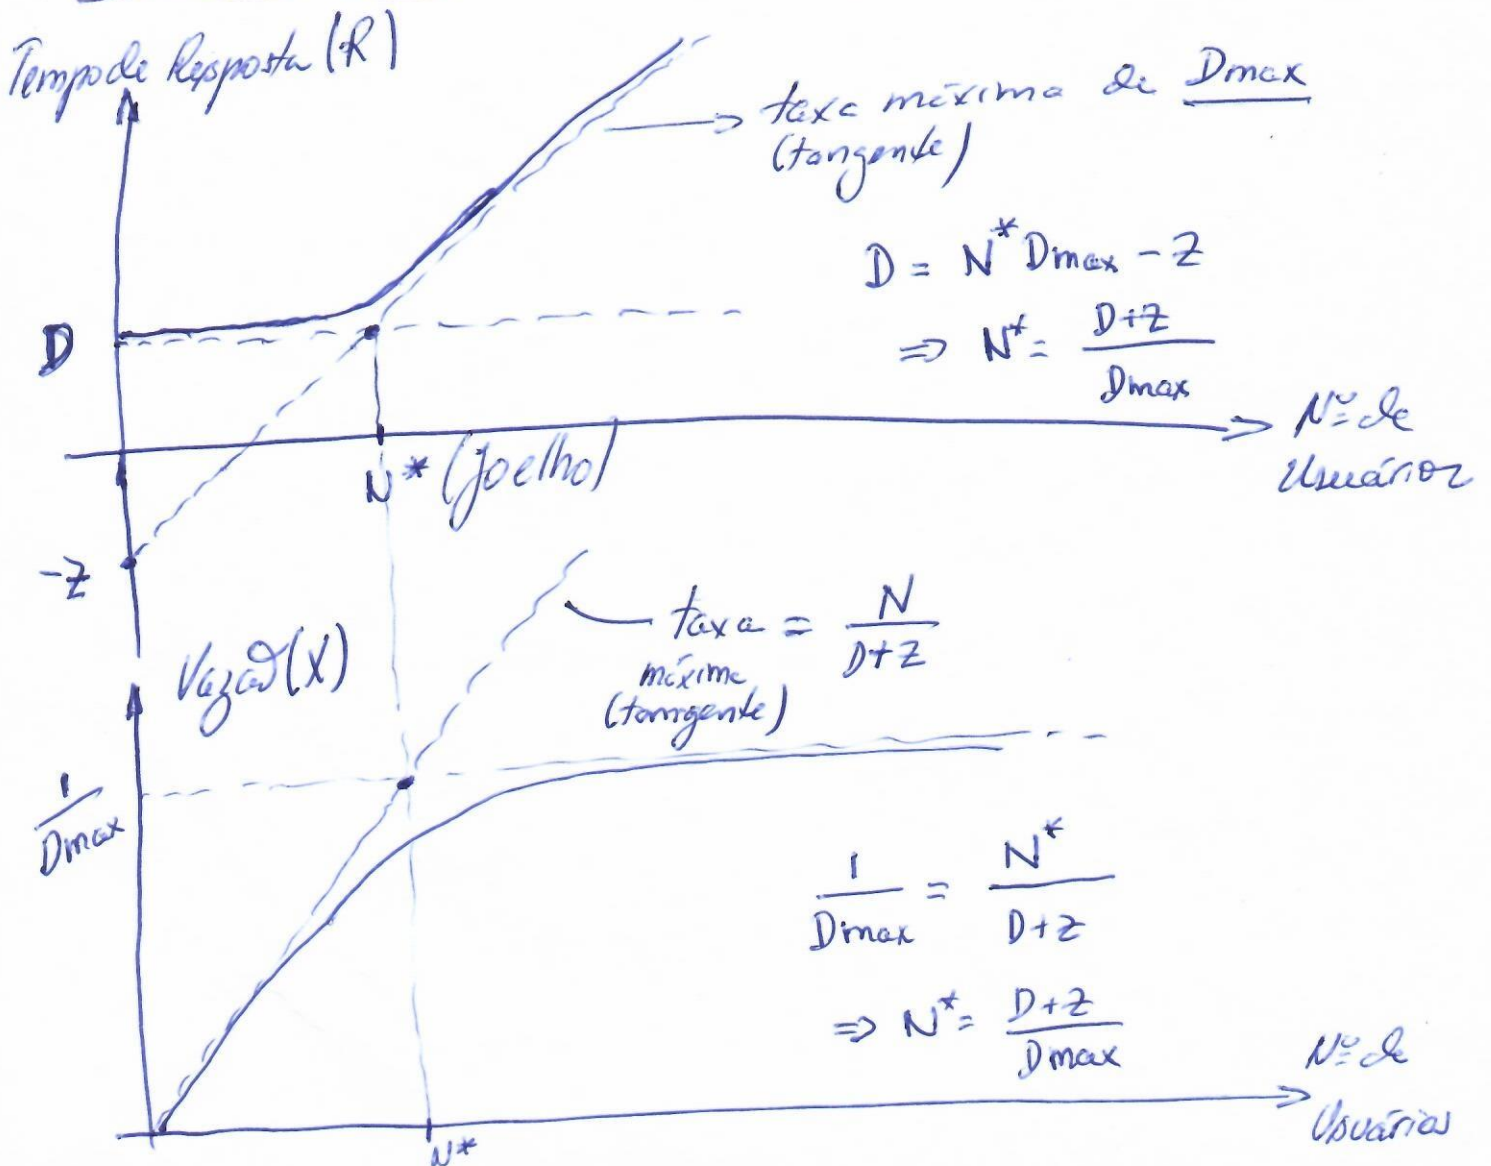 Tempo de Resposta (R)
taxa máxima de Dmax
(tangente)
D = N* Dmax - Z
D
⇒ N* = D+Z / Dmax
Nº de
Usuários
N* (joelho)
-Z
taxa = N / D+Z
máxima
(tangente)
Vazão (X)
1 / Dmax
1 / Dmax = N* / D+Z
⇒ N* = D+Z / Dmax
Nº de
Usuários
N*